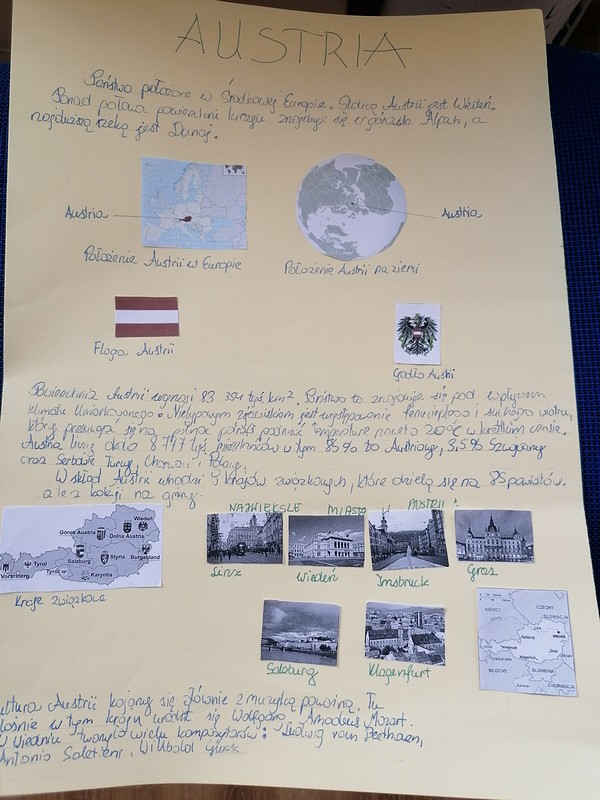 AUSTRIA
Państwo położone w Środkowej Europie. Stolicą Austrii jest Wiedeń.
Ponad połowa powierzchni kraju znajduje się w Alpach, a
najdłuższą rzeką jest Dunaj.
Austria
Austria
Położenie Austrii w Europie
Położenie Austrii na ziemi
Flaga Austrii
Godło Austrii
Powierzchnia Austrii wynosi 83 tyś. km². Państwo to znajduje się pod wpływem
klimatu Umiarkowanego. Nietypowym zjawiskiem jest występowanie fenu ciepłego i suchego wiatru,
który na północ potrafi podnieść temperaturę nawet o 20°C w krótkim czasie.
Austrię około 8 777 tyś. mieszkańców w tym 85% to Austriacy, 3,5%
oraz Serbowie Turcy, Chorwaci i Polacy.
W skład Austrii wchodzi 9 krajów związkowych, które dzielą się na 85 powiatów.
a te z kolei na gminy.
NAJWIĘKSZE MIASTA W AUSTRII:
Wiedeń
Górna Austria
Dolna Austria
Salzburg
Styria
Burgenland
Tyrol
Tyrol
Vorarlberg
Karyntia
Kraje związkowe
Linz
Wiedeń
Innsbruck
Graz
Salzburg
Klagenfurt
NIEMCY
CZECHY
SŁOWACJA
WŁOCHY
SŁOWENIA
CHORWACJA
Kultura Austrii kojarzy się głównie z muzyką poważną. Tu
właśnie w tym kraju urodził się Wolfgang Amadeus Mozart.
W Wiedniu tworzyło wielu kompozytorów: Ludwig van Beethoven,
Antonio Salieri, Willibald